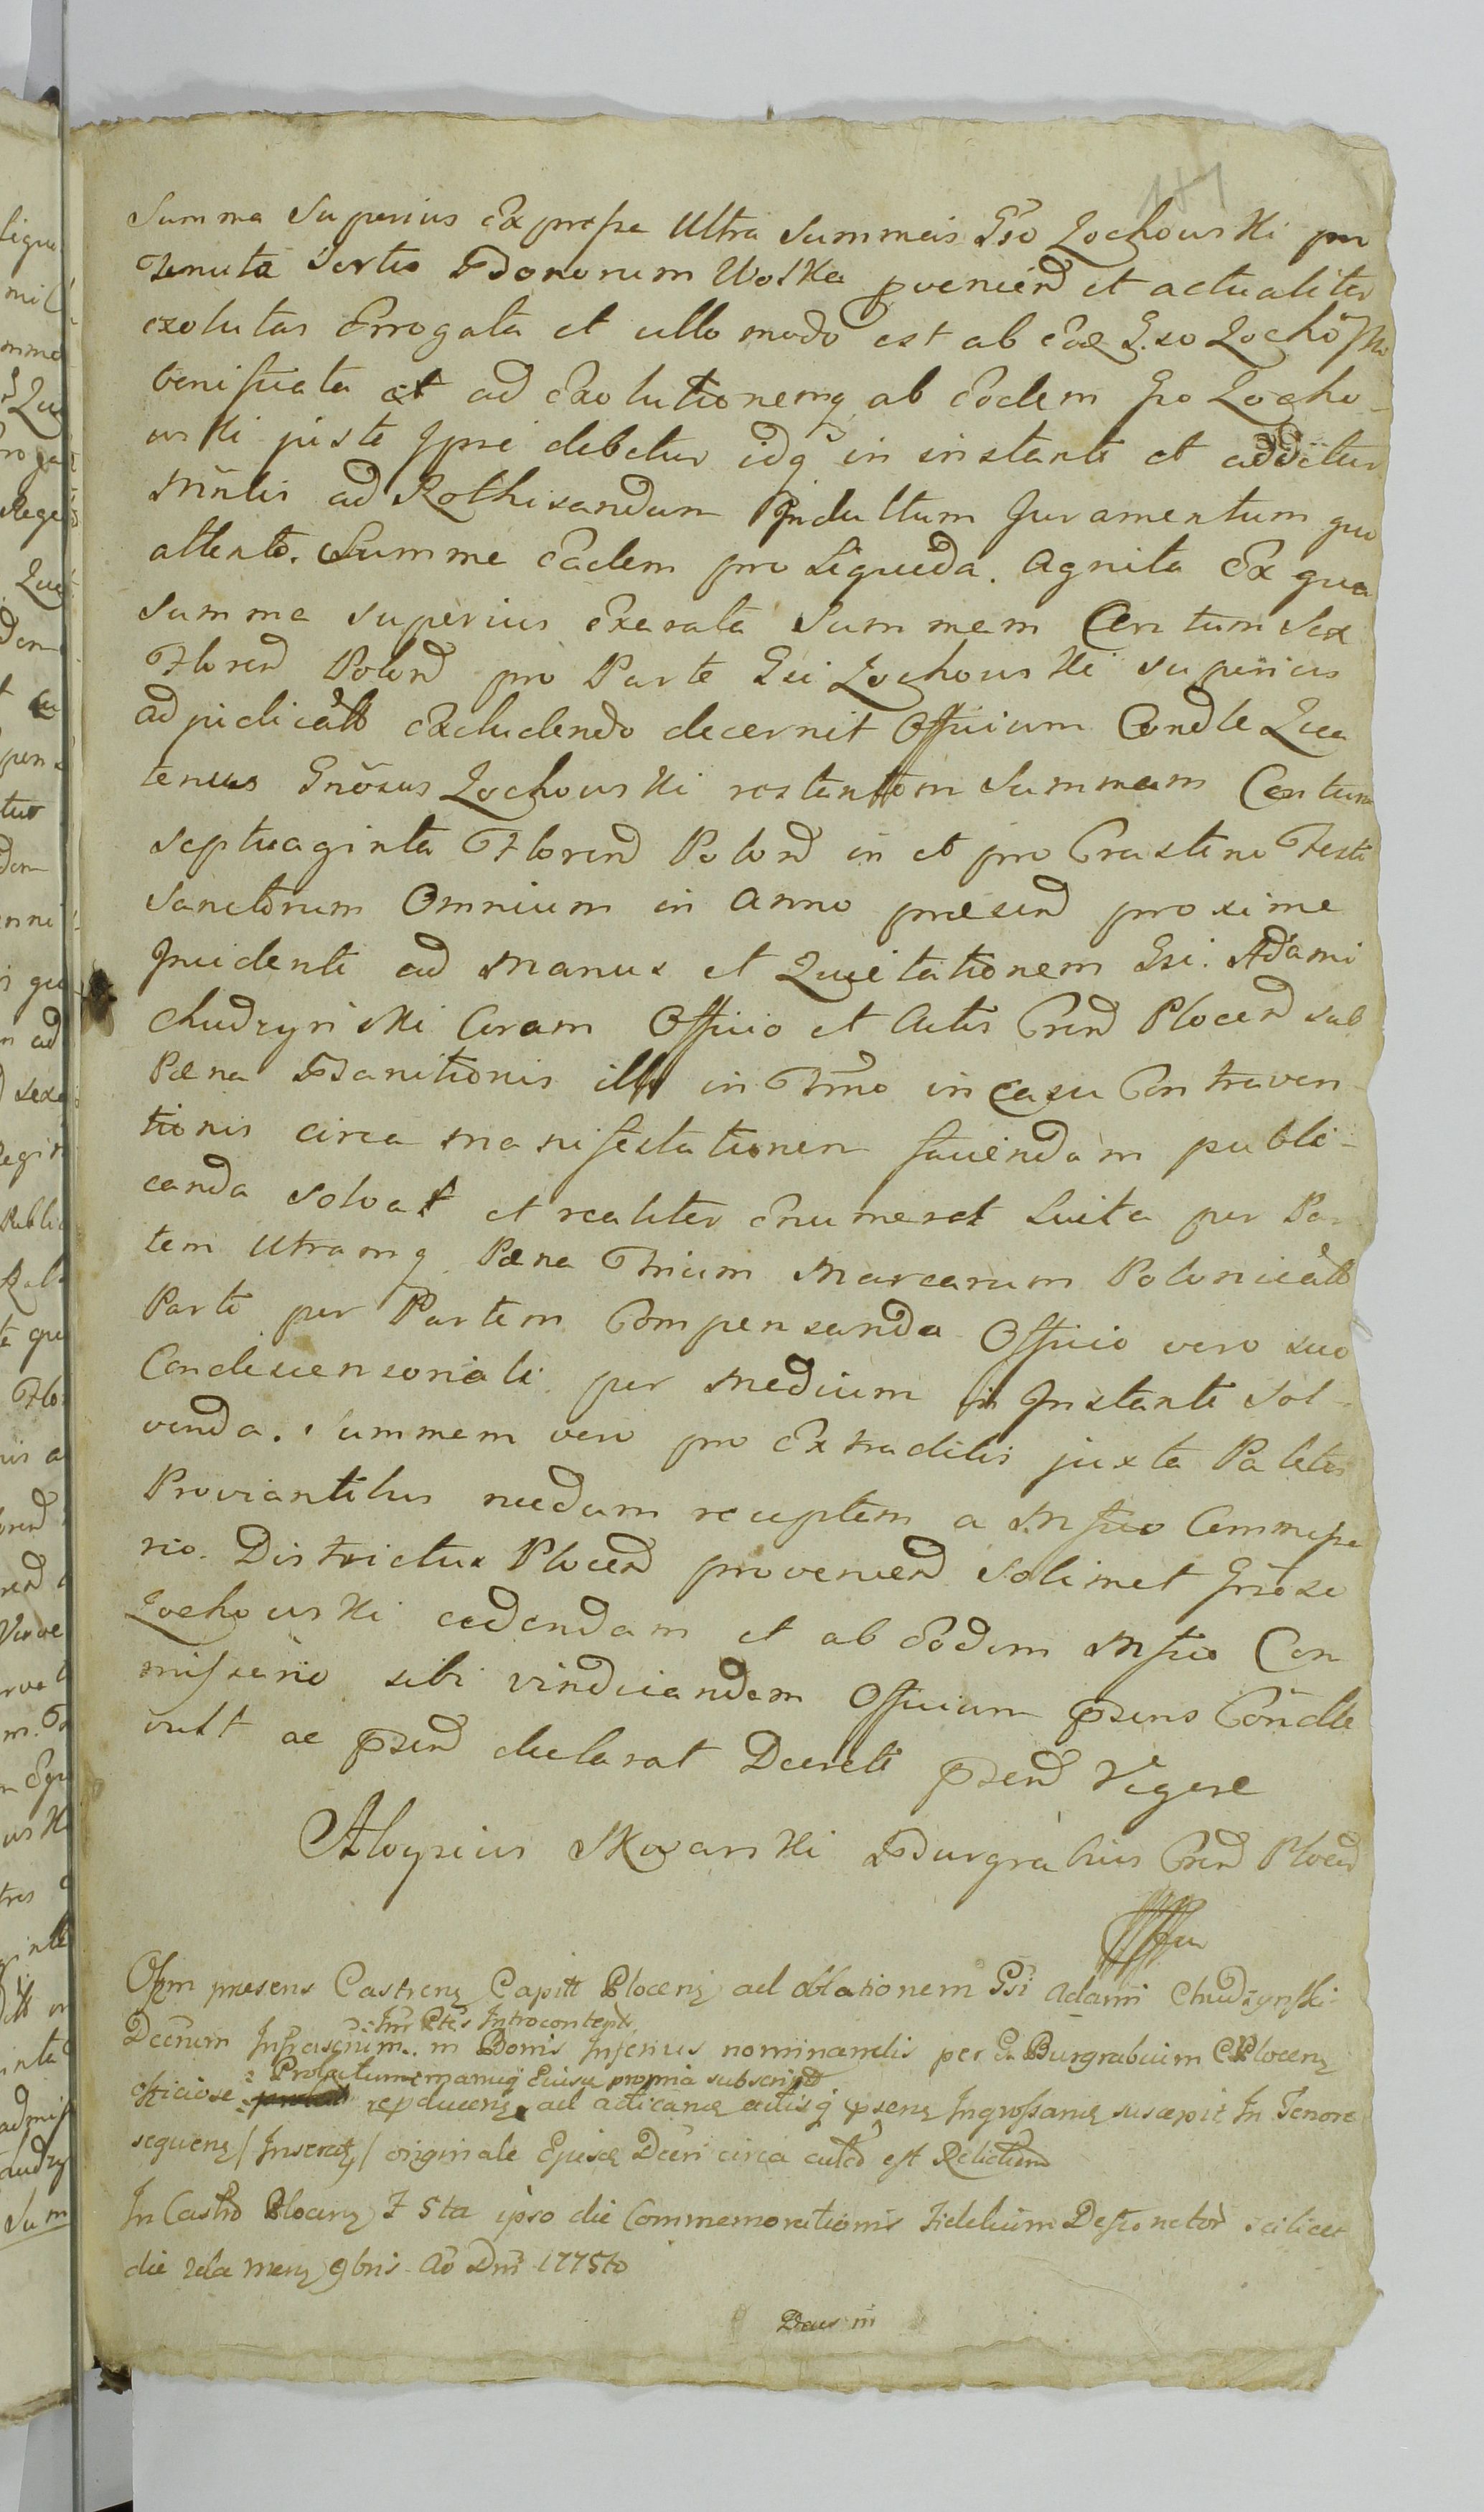 Summa Superius Expressa Ultra Summas Gso Lochowski pro
Tenuta Sortis Bonorum Wolka pvenien et actualiter
exolutas Erogata et ullo modo est ab eod Gso Lochowski
bonificata et ad Exolutionemq ab Eodem Gso Locho-
wski juste Ipsi debetur idq in instanti et additur
Mntis ad Rothisandum Indultum Juramentum quo
attento. Summe Eadem pro Liquida. agnita Ex qua
Summa superius Exarata Summam Centum Sex
Floren Polon pro Parte Gsi Lochowski superius
adjudicatt Excludendo decernit Officium Condle Qua
tenus Gnosus Lochowski restantem Summam Centum
septuaginta Floren Polon in et pro Crastino Festi
Sanctorum Omnium in Anno præsen proxime
Incidenti ad Manus et Quietationem Gsi. Adami
Chudzynski Coram Officio et Actis Cren Plocen sub
Pæna Banitionis illi in Tmo in Casu Contraven-
tionis circa Manifestationem faciendam publi-
canda Solvat et realiter Enumeret Luita per Par
tem Utramq Pæna Trium Marcarum Polonicatt
Parte per Partem Compensanda Officio vero suo
Condescensoriali per Medium in Instanti Sol-
venda. Summam vero pro Extraditis juxta Paletas
Proviantibus necdum receptam a Mfico Commissa
rio. Districtus Plocen provenien Solimet Gnoso
Lochowski cedendam et ab Eodem Mfico Com
missario sibi vindicandam Officium psens Condle
vult ac psen declarat Decreti psen Vigore
Aloysius Skozarski Burgrabius Cren Plocen
Offm presens Castren Capitt Plocen ad oblationem Gsi Adami Chudzynski
Int Ptes Introcontent
Decrum Infrascrium in Bonis Inferius nominandis per G. Burgrabium C Plocen
Prolatum manuq Eiusd propria subscript
officiose reproducen ad acticand actisq psen Ingrossand suscepit In Tenore
sequen / Inseratq / originale Ejusd Decri circa acta est Relictum
In Castro Plocen F 5ta ipso die Commemorationis Fidelium Defunctor scilicet
die 2da Mens 9bris Ao Dni 1775to